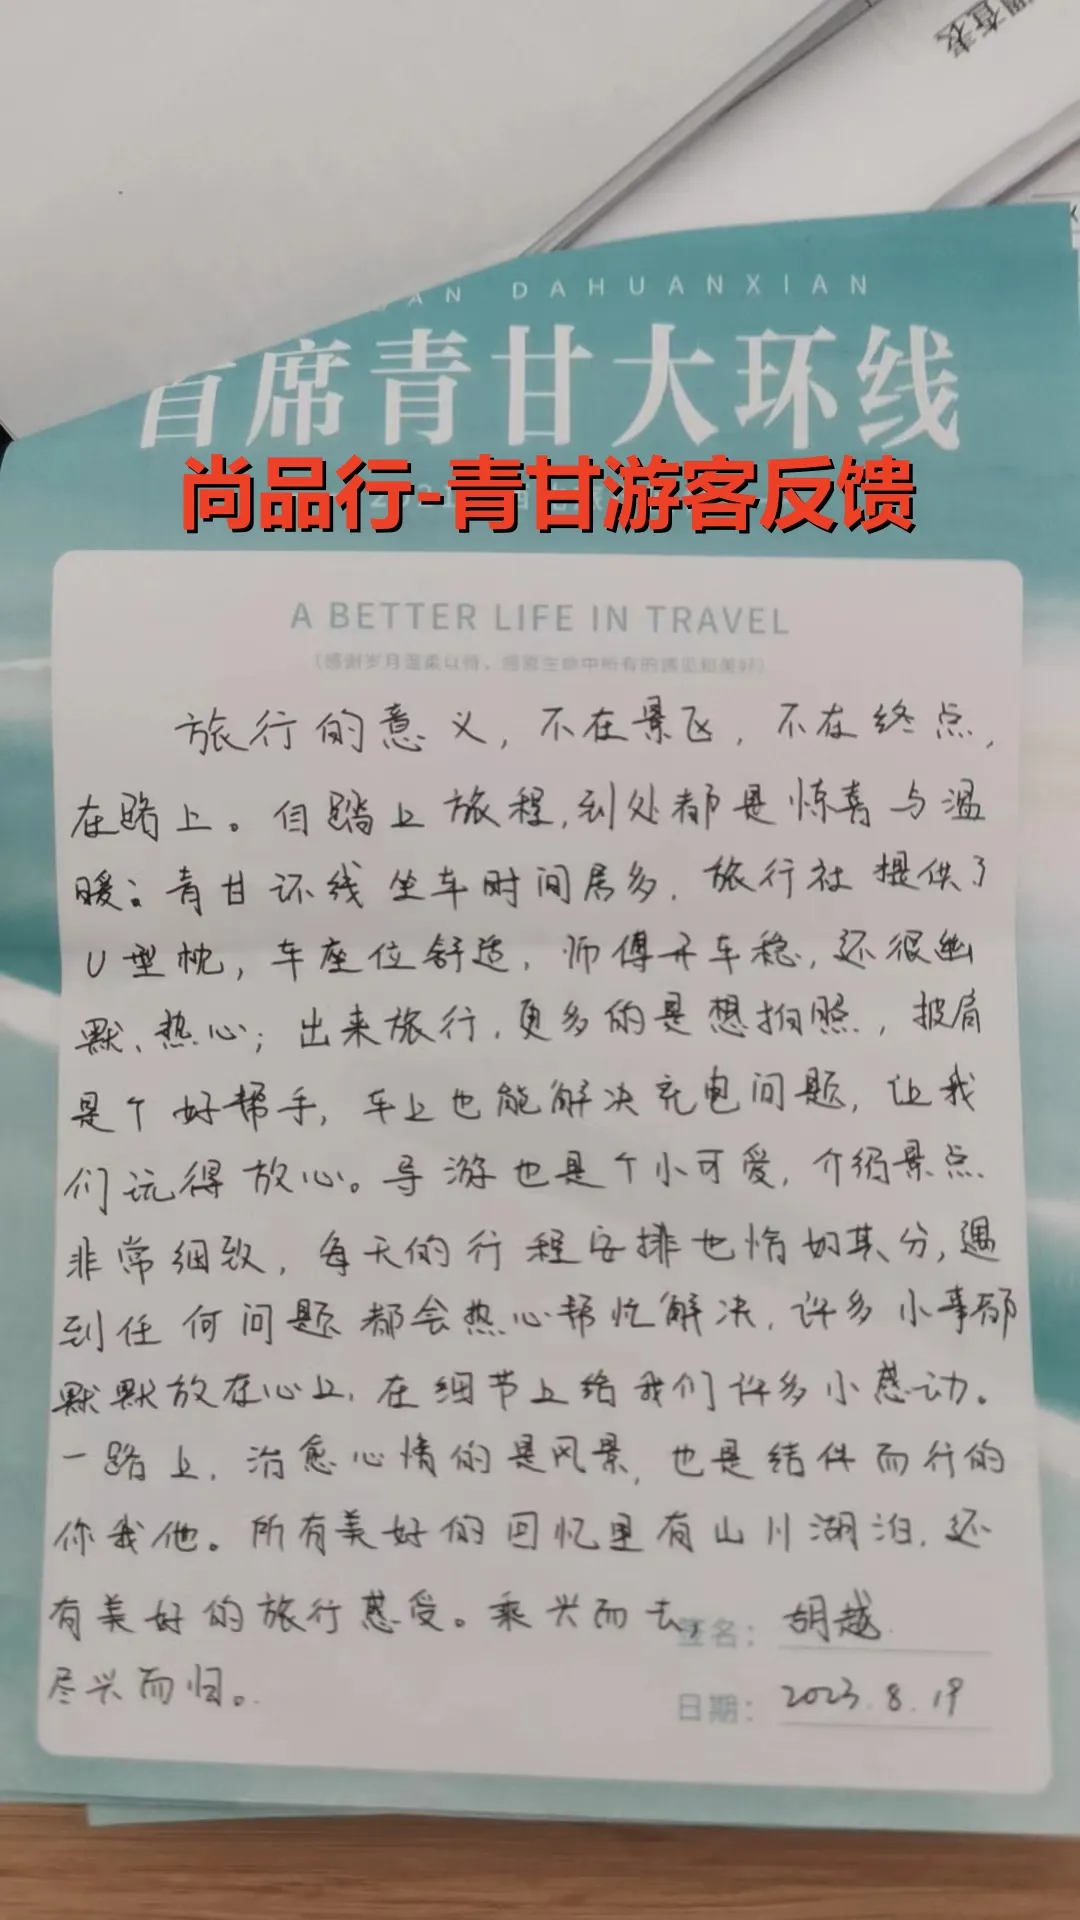 DAHUANXIAN
首席青甘大环线
尚品行-青甘游客反馈
A BETTER LIFE IN TRAVEL
(感谢岁月温柔以待，感恩生命中所有的遇见和美好)
旅行的意义，不在景区，不在终点，
在路上。自踏上旅程，到处都是惊喜与温
暖：青甘环线坐车时间居多，旅行社提供了
U型枕，车座位舒适，师傅开车稳，还很幽
默、热心；出来旅行，更多的是想拍照，披肩
是个好帮手，车上也能解决充电问题，让我
们玩得放心。导游也是个小可爱，介绍景点
非常细致，每天的行程安排也恰如其分，遇
到任何问题都会热心帮忙解决，许多小事都
默默放在心上，在细节上给我们许多小感动。
一路上，治愈心情的是风景，也是结伴而行的
你我他。所有美好的回忆里有山川湖泊，还
有美好的旅行感受。乘兴而去，
尽兴而归。
签名：胡越
日期：2023.8.19